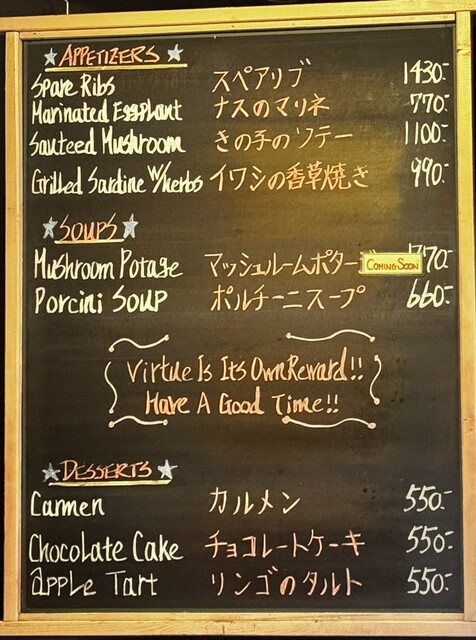 ★ APPETIZERS ★
Spare Ribs スペアリブ 1430.-
Marinated Eggplant ナスのマリネ 770.-
Sauteed Mushroom きの子のソテー 1100.-
Grilled Sardine w/herbs イワシの香草焼き 990.-
★ SOUPS ★
Mushroom Potage マッシュルームポター COMING SOON 770.-
Porcini SOUP ポルチーニスープ 660.-
Virtue Is Its Own Reward!!
Have A Good Time!!
★ DESSERTS ★
Carmen カルメン 550.-
Chocolate Cake チョコレートケーキ 550.-
apple Tart リンゴのタルト 550.-